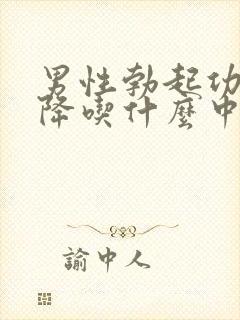 男性勃起功
降喫什麼中
諭中人